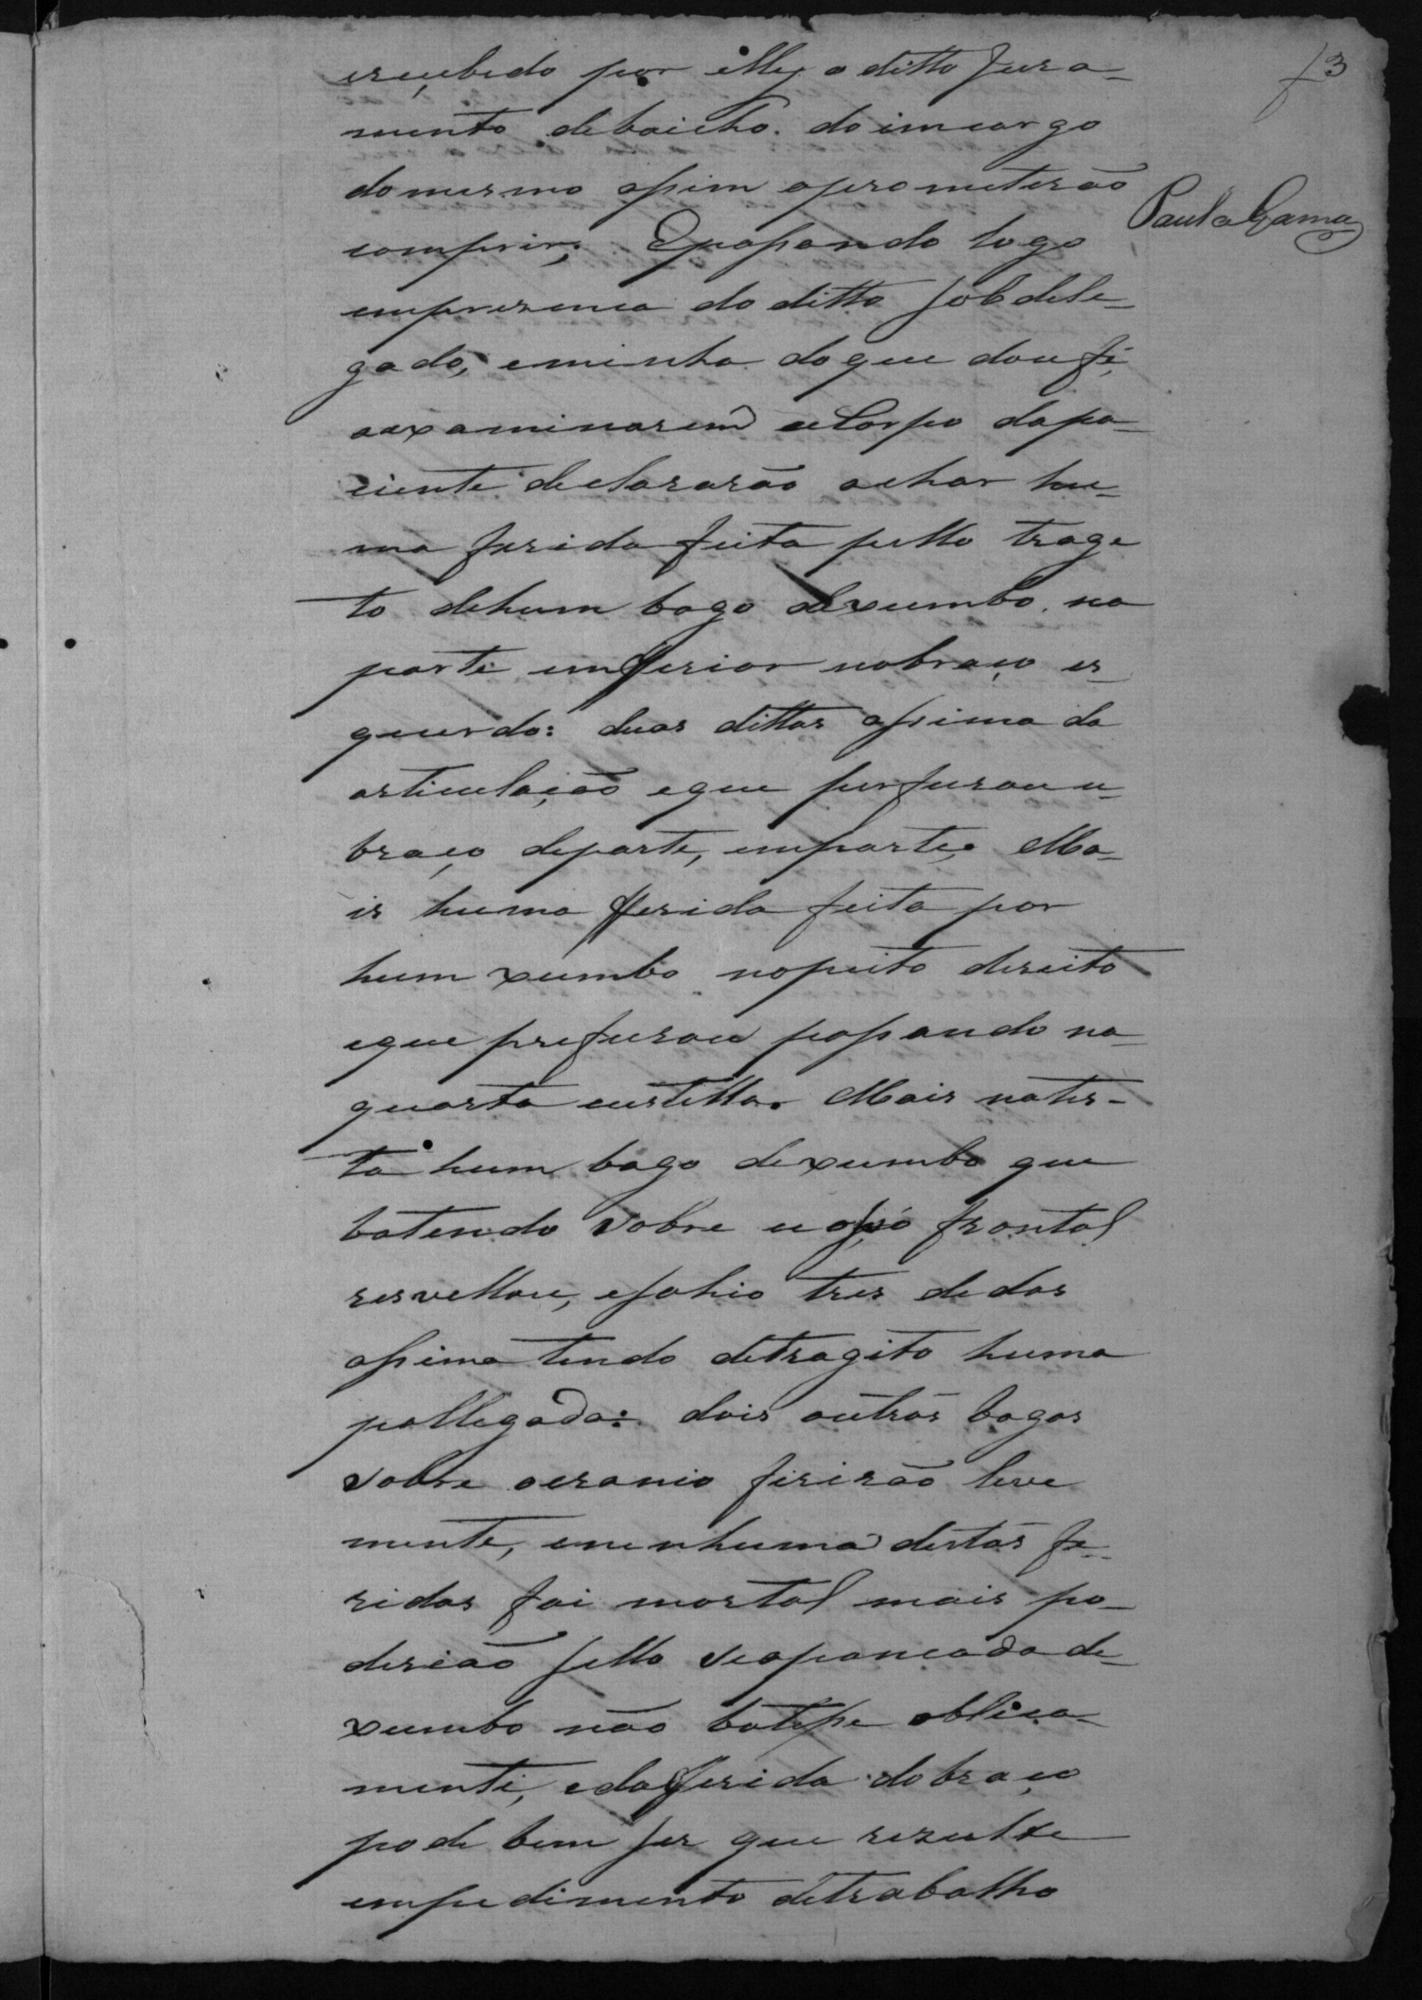 f 3
Paula Gama
reçebido por elles o ditto Jura-
mento debaicho do imcargo
do mesmo assim o prometerão
comprir; Epassando logo
empresença do ditto Sobdele-
gado, eminha do que dou fé,
aexaminarem ocorpo dopa-
ciente declararão achar hu-
ma ferida feita pello trage
to dehum bago dexumbo na
parte emferior nobraço es-
querdo: duas dittas assima da
articulação eque perfurou u-
braço departe, emparte. Ma-
is huma ferida feita por
hum xumbo nopeito direito
eque prefurou passando na
quarta custella. Mais nates-
ta hum bago dexumbo que
batendo sobre u osso frontal
resvellou, esahio tres dedos
assima tendo detragito huma
pollegada: dois outros bagos
sobre ocranio ferirão leve
mente, enenhuma destas fe-
ridas foi mortal mais po-
derião sello seapancada de-
xumbo não batesse oblica-
mente, edaferida dobraço
pode bem ser que rezulte
empedimento detrabalho